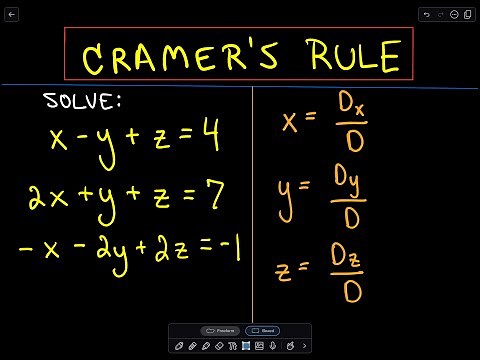 CRAMER'S RULE
SOLVE:
x - y + z = 4
2x + y + z = 7
-x - 2y + 2z = -1
x = Dx/D
y = Dy/D
z = Dz/D
Freeform
Board